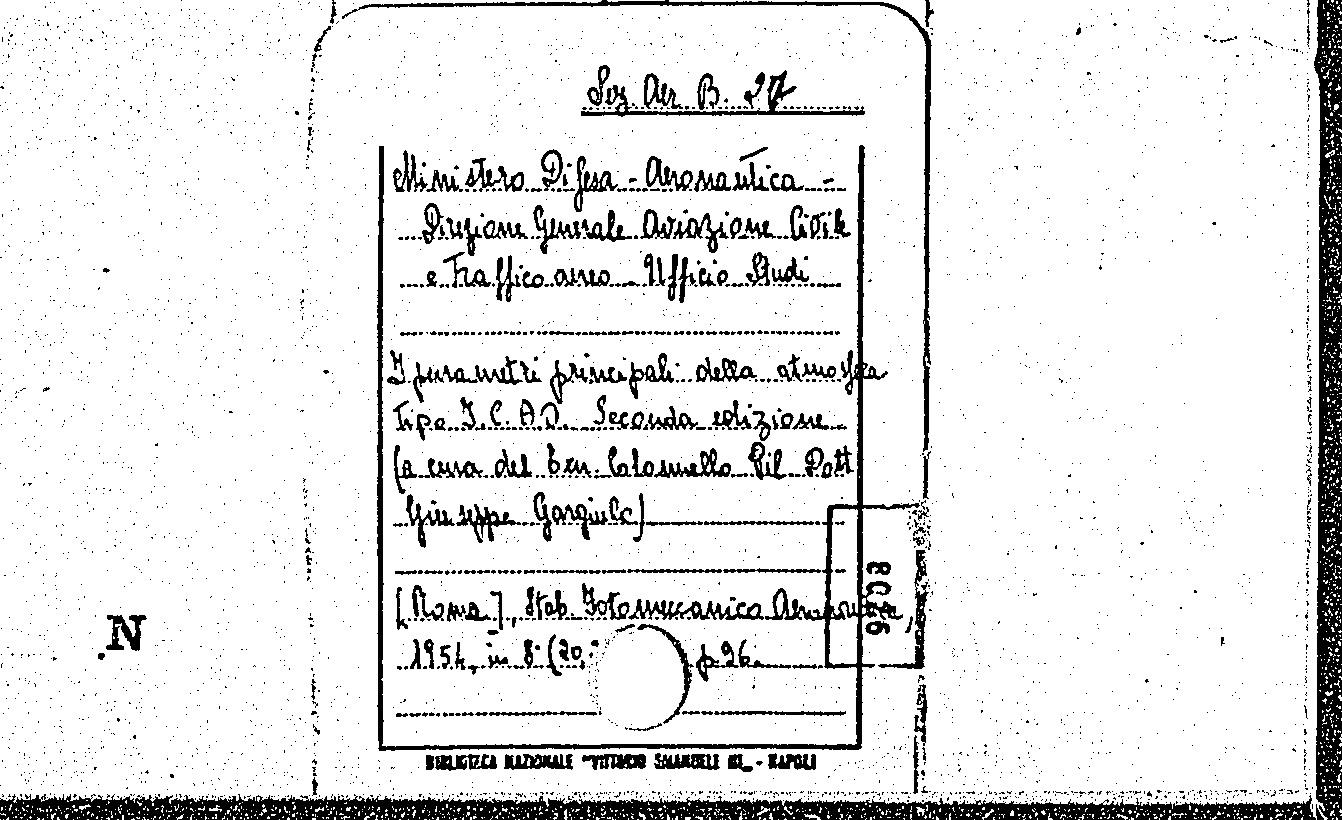 Sez. Aer. B. 27
Ministero Difesa - Aeronautica -
Direzione Generale Aviazione Civile
e Traffico aereo - Ufficio Studi
I parametri principali della atmosfera
tipo I.C.A.O. Seconda edizione
(a cura del Ten. Colonnello Pil. Dott
Giuseppe Gargiulo)
[Roma], Stab. Fotomeccanico Aeronautica,
1954, in 8° (20, p. 96.
BIBLIOTECA NAZIONALE "VITTORIO EMANUELE III" - NAPOLI
N